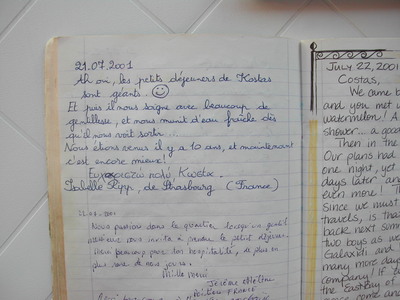 21.07.2001
Ah oui, les petits déjeuners de Kostas
sont géants.
Et puis il nous soigne avec beaucoup de
gentillesse, et nous munit d'eau fraîche dès
qu'il nous voit sortir...
Nous étions venus il y a 10 ans, et maintenant
c'est encore mieux!
Ευχαριστώ πολύ Κώστα.
Isabelle de Strasbourg (France)
Nous passions dans le quartier lorsqu'un gentil
monsieur nous invita à prendre le petit déjeuner.
Merci beaucoup pour son hospitalité, de plus en
plus rare de nos jours.
Mille merci
Jérôme
July 22, 2001
Costas,
We came b
and you met u
watermelon! A
shower... a good
Then in the
Our plans had
one night, yet
days later and
even more! T
Since we must
travels, is tha
back next summ
two boys as we
Galaxidi and
many more day
company! If t
the Eastern